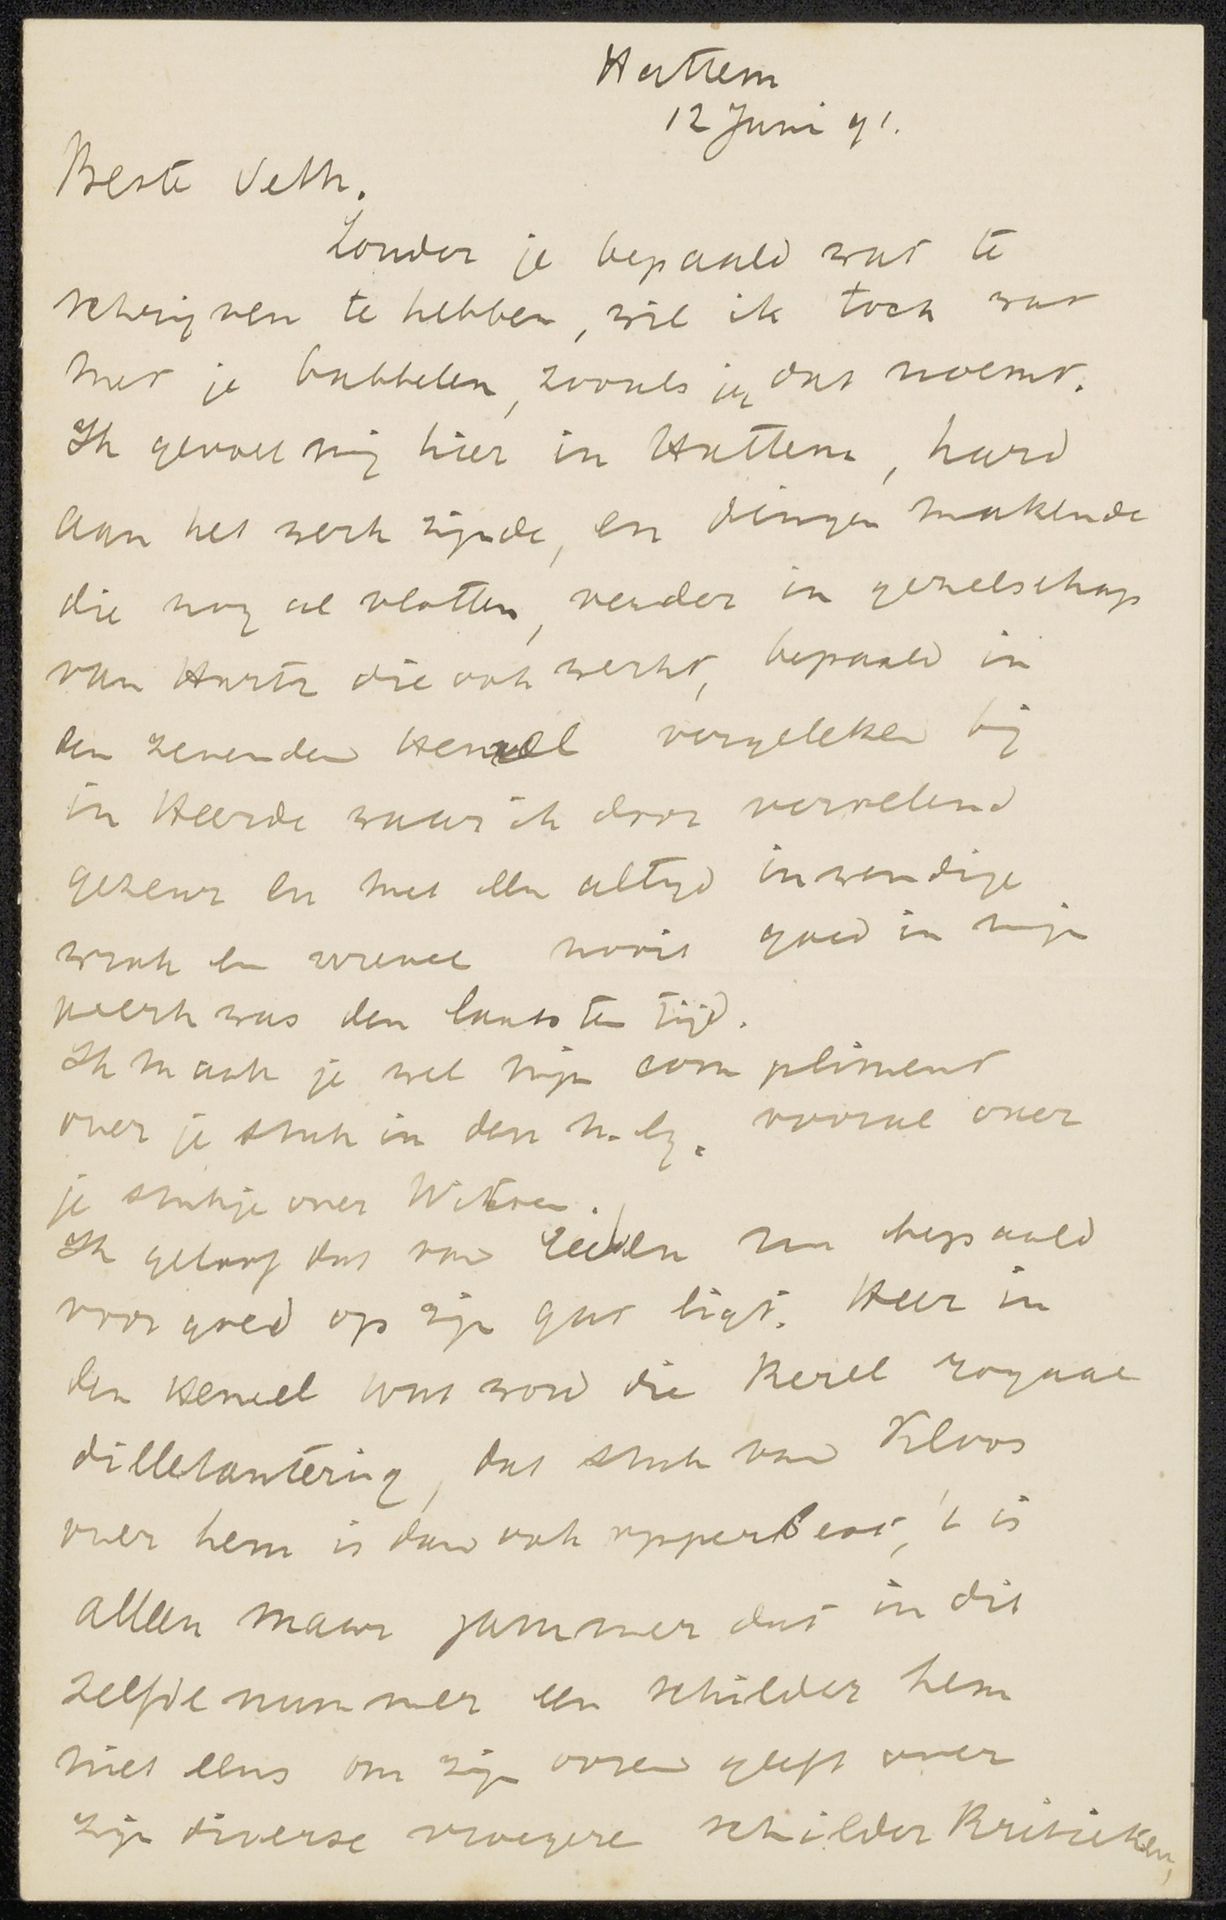 Hattem
12 Juni 91.
Beste Veth.
Zonder je bepaald wat te
schrijven te hebben, wil ik toch wat
met je babbelen, zooals jij dat noemt.
Ik gevoel mij hier in Hattem, hard
aan het werk zijnde, en dingen makende
die nog al vlotten, verder in gezelschap
van Hartz die ook werkt, bepaald in
den zevenden Hemel vergeleken bij
in Heerde waar ik door vervelend
gezeur en met een altijd inwendige
wrok en wrevel nooit goed in mijn
was den laatsten tijd.
Ik maak je wel mijn compliment
over je stuk in den N. G. vooral over
je stukje over Witsen.
Ik geloof dat van Eeden nu bepaald
voor goed op zijn gat ligt. Heer in
den Hemel wat word die Kerel royaal
dilletantering, dat stuk van Kloos
over hem is dan ook opperbest, 't is
alleen maar jammer dat in dit
zelfde nummer een schilder hem
niet eens om zijn ooren geeft over
zijn diverse vroegere schilder Kritieken,